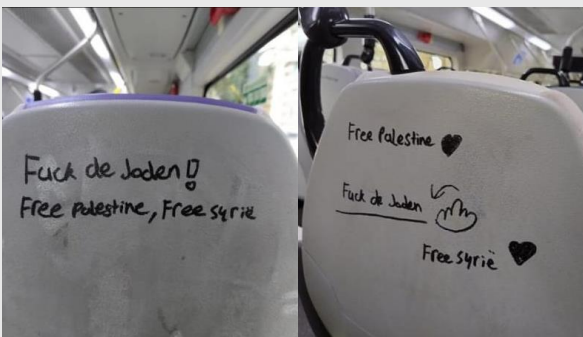 Fuck de Joden!
Free Palestine, Free syrië
Free Palestine
Fuck de Joden
Free syrië